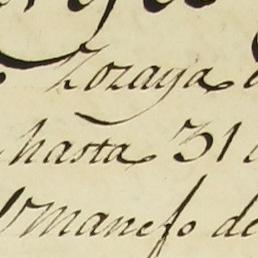 Zozaya
hasta 31
Manefo de